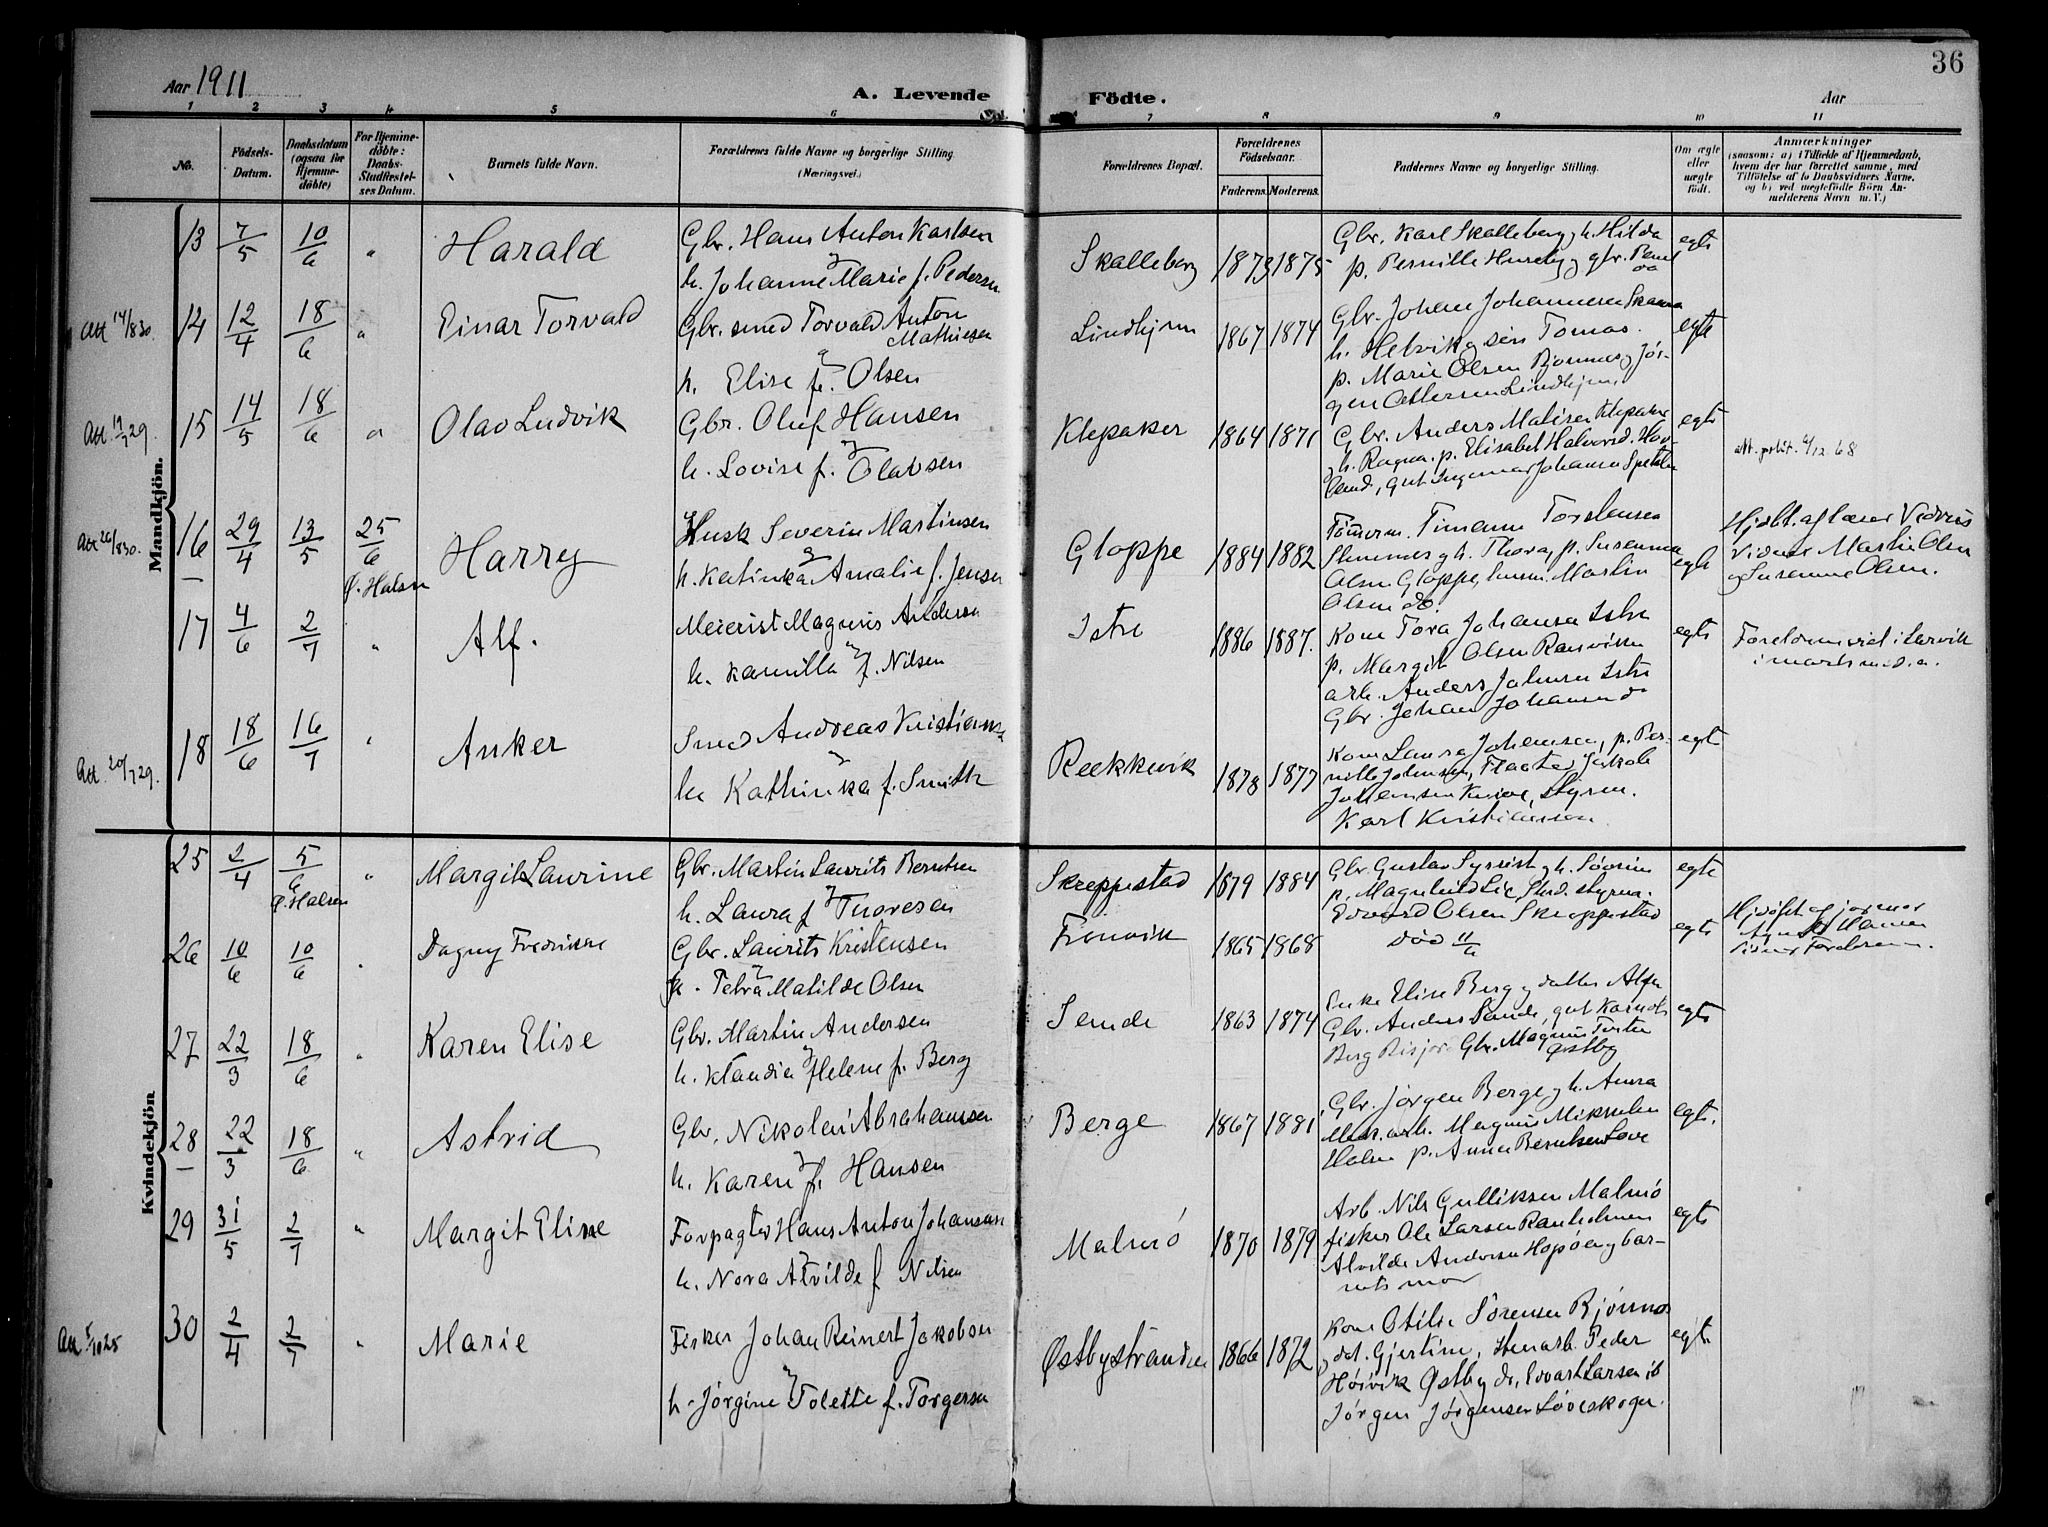 36
Aar 1911
A. Levende Födte.
Aar
1 2 3 4 5 6 7 8 9 10 11
No.
Födsels-Datum.
Daabsdatum (ogsaa for Hjemmedöbte)
For Hjemmedöbte: Daabs-Stadfæstelses Datum.
Barnets fulde Navn.
Forældrenes fulde Navne og borgerlige Stilling
(Næringsvei.)
Forældrenes Bopæl.
Forældrenes Födselsaar.
Faderens. Moderens.
Faddernes Navne og borgerlige Stilling.
Om ægte eller uægte født.
Anmærkninger
(saasom: a) i Tilfælde af Hjemmedaab,
hvem der har forrettet samme, med
Tilföielse af to Daabsvidners Navne,
og b) ved uægtefödte Börn An-
melderens Navn m. V.)
Mandkjön.
13 7/5 10/6 " Harald
Gbr. Hans Anton Karlsen
og
h. Johanne Marie f. Pedersen
Skalleberg 1873 1875
Gbr. Karl Skalleberg, h. Hilda
p. Pernille Huseby, gbr.
egte
Att 14/8 30. 14 12/4 18/6 " Einar Torvald
Gbr. smed Torvald Anton
Mathiesen
og
h. Elise f. Olsen
Lindhjem 1867 1874
Gbr. Johan Johannesen
h. Helvik og sön Tomas.
p. Marie Olsen Bjønnes, Jör-
gen Lindhjem.
egte
Att 19/7 29. 15 14/5 18/6 " Olav Ludvik
Gbr. Oluf Hansen
og
h. Lovise f. Olavsen
Klepaker 1864 1871
Gbr. Anders Klepaker
h. Ragna. p. Elisabet
gut Ingemar Johansen
egte
12.68
Att 26/8 30. 16 29/4 13/5 25/6 Harry
Ø. Halsen
Husk Severin Martinsen
og
h. Katinka Amalie f. Jensen
Gloppe 1884 1882
Tömmerm. Timann Torstensen
Stennes og h. Thora, p. Susanna
Olsen Gloppe, Martin
Olsen do.
egte
Hjdbt. af lærer
Vidner Martin Olsen
og Susanne Olsen.
17 4/6 2/7 " Alf.
Meierist Magnus Andersen
og
h. Kamilla f. Nilsen
Istre 1886 1887.
Kone Tora Johansen Istre
p. Margit Olsen Ranviken
arb. Anders Johnsen Istre
Gbr. Johan Johansen do
egte
Foreldrene viet i Larvik
i marts md. d. a.
Att 20/7 29. 18 18/6 16/7 " Anker
Smed Andreas Kristiansen
og
h. Kathinka f. Smith
Rekkevik 1878 1877
Kone Laura Johansen, p. Per-
nille Johnsen, Jakob
Johansen styrm.
Karl Kristiansen
egte
Kvindekjön
25 2/4 5/6 " Margit Laurine
Ø. Halsen
Gbr. Martin Laurits Berntsen
og
h. Laura f. Thoresen
Skreppestad 1879 1884
Gbr. Gustav Syrrist og h. Severine
p. Magnhild Lie, styrm.
Edvard Olsen Skreppestad
egte
26 10/6 10/6 . Dagny Fredrikke
Gbr. Laurits Kristensen
og
h. Petra Matilde Olsen
Fronvik 1865 1868
död 11/6
egte
Hjdöbt af jormor
Hansen
vidner Foreldrene.
27 22/3 18/6 " Karen Elise
Gbr. Martin Andersen
og
h. Klaudia Helene f. Berg
Sende 1863 1874
Enke Elise Berg og datter
Gbr. Anders Sande, gut
Berg Gbr. Magnus
Østby
egte
28 22/3 18/6 " Astrid
Gbr. Nikolai Abrahamsen
og
h. Karen f. Hansen
Berge 1867 1881
Gbr. Jørgen Berge, h. Anna
arb. Magnus Mikkelsen
Holm p. Anna Berntsen Love
egte.
29 31/5 2/7 " Margit Eline
Forpagter Hans Anton Johansen
og
h. Nora Alvilde f Nilsen
Malmö 1870 1879
Arb. Nils Gulliksen Malmö
fisker Ole Larsen Ranholmen
Alvilde Andersen og bar-
nets mor
egte
Att 5/10 25 30 2/4 2/7 " Marie
Fisker Johan Reinert Jakobsen
og
h. Jørgine Tolette f. Torgersen
Østbystranden 1866 1872
Kone Otilie Sørensen Bjönnes
og dat. Gjertine, Stenarb. Peder
Høivik Østby do, Edvart Larsen ib
Jørgen Jørgensen Løveskogen.
egte